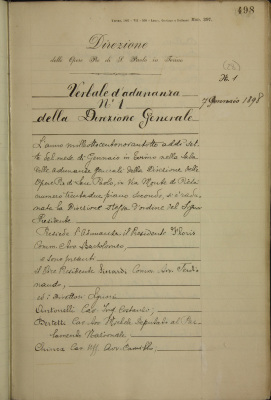 498
Direzione
delle Opere Pie di S. Paolo in Torino
N. 1
Verbale d'adunanza
7 Gennaio 1898
N° 1
della Direzione Generale
L'anno milleottocentonovantotto addì set-
te del mese di Gennaio in Torino nella Sala
delle adunanze generali della Direzione delle
Opere Pie di San Paolo, in Via Monte di Pietà
numero trentadue piano secondo, si è adu-
nata la Direzione d'ordine del Signor
Presidente
Presiede l'adunanza il Presidente Floris
Comm. Avv. Bartolomeo,
e sono presenti
il Vice Presidente Comm. Avv. Ferdi-
nando,
ed i Direttori Signori
Antonelli Cav. Ing. Costanzo;
Bertetti Cav. Avv. Michele Deputato al Par-
lamento Nazionale
Chiesa Cav. Uff. Avv. Camillo